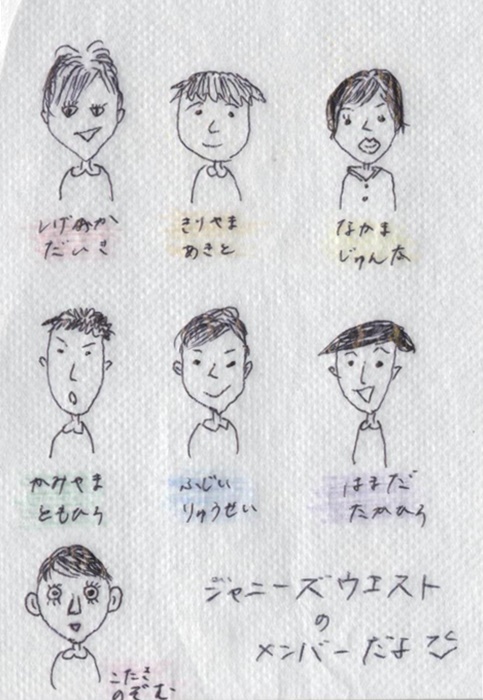 しげおか
だいき
きりやま
あきと
なかま
じゅんた
かみやま
ともひろ
ふじい
りゅうせい
はまだ
たかひろ
こたき
のぞむ
ジャニーズウエスト
の
メンバーだよ